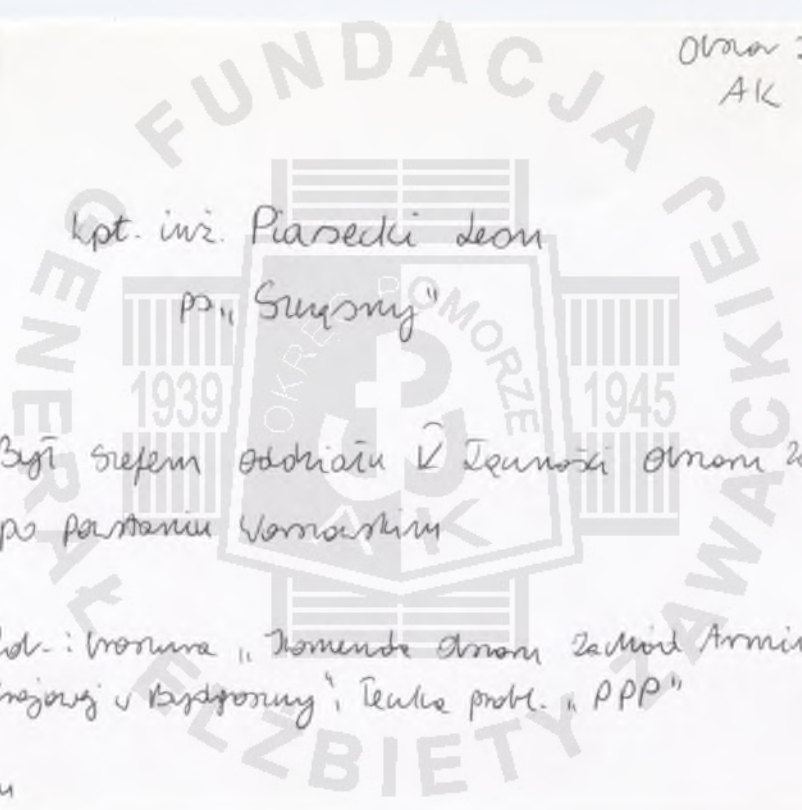 Obszar Z
AK
kpt. inż. Piasecki Leon
ps. „Szczęsny"
Był szefem oddziału V Łączności Obszaru Za
po powstaniu Warszawskim
: broszura „Komenda Obszaru Zachód Armii
Krajowej w Bydgoszczy", Teczka probl. „PPP"
FUNDACJA GENERAŁ ELŻBIETY ZAWACKIEJ
OKRĘG POMORZE
1939
1945
AK